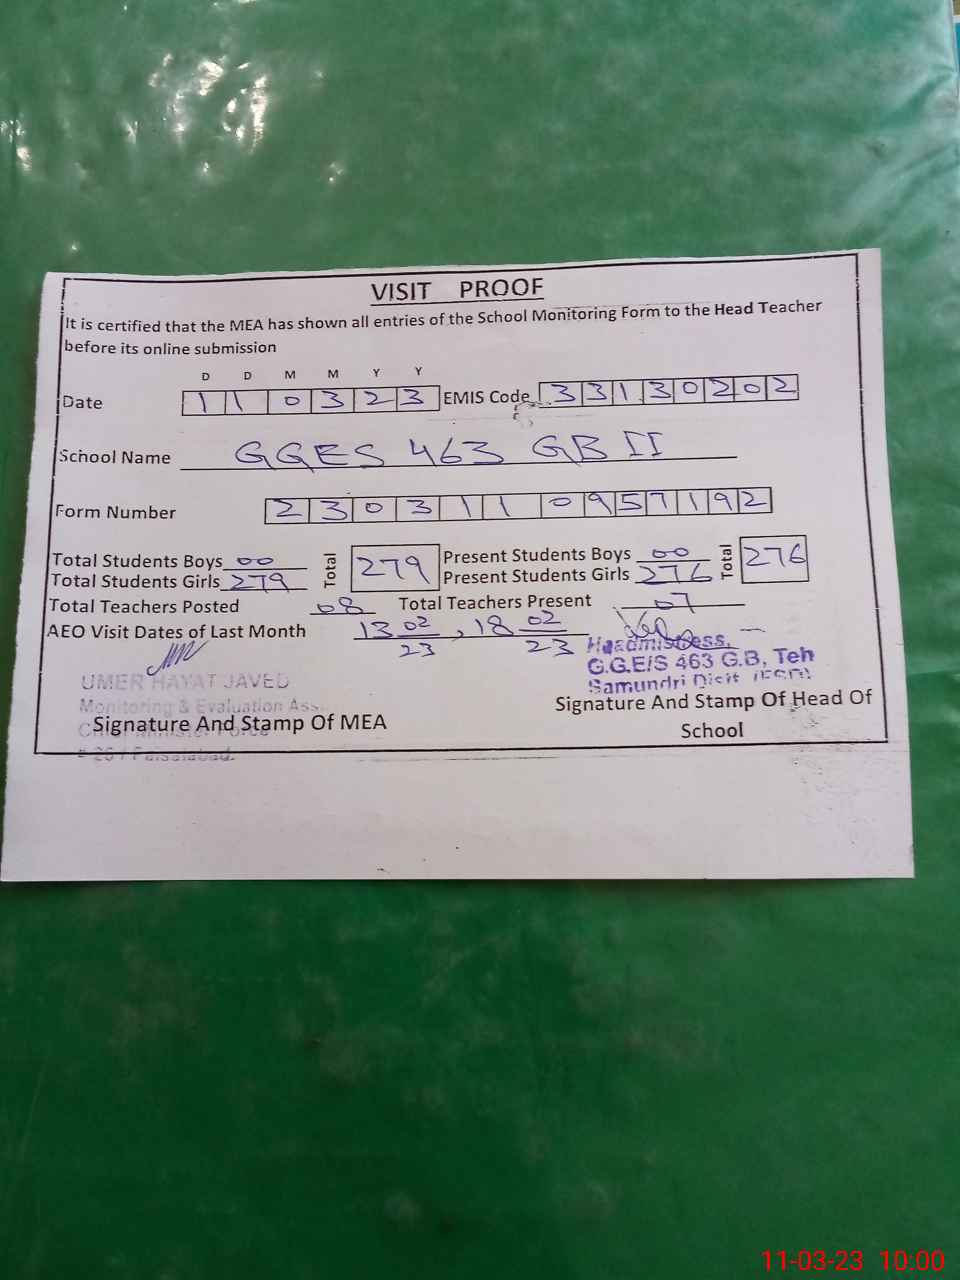 VISIT PROOF
It is certified that the MEA has shown all entries of the School Monitoring Form to the Head Teacher
before its online submission
D D M M Y Y
Date 110323 EMIS Code 33130202
School Name GGES 463 GB II
Form Number 230311 0957192
Total Students Boys 00 Total 279 Present Students Boys 00 Total 276
Total Students Girls 279 Present Students Girls 276
Total Teachers Posted 08 Total Teachers Present 07
AEO Visit Dates of Last Month 13 02/23, 18 02/23
Headmistress,
G.G.E/S 463 G.B, Teh
Samundri Distt (FSD)
UMER HAYAT JAVED
Monitoring & Evaluation Ass.
Signature And Stamp Of MEA
Signature And Stamp Of Head Of
School
Faisalabad.
11-03-23 10:00